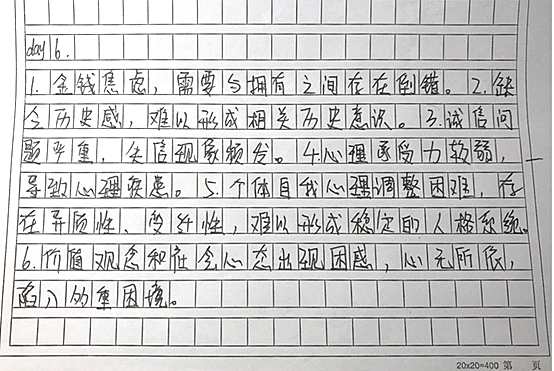 day 6.
1.金钱焦虑，需要与拥有之间存在倒错。2.缺
乏历史感，难以形成相关历史意识。3.诚信问
题严重，失信现象频发。4.心理承受力较弱，
导致心理疾患。5.个体自我心理调整困难，存
在异质性、变纤性，难以形成稳定的人格系统。
6.价值观念和社会心态出现困惑，心无所依，
陷入的重困境。
20x20=400 第 页